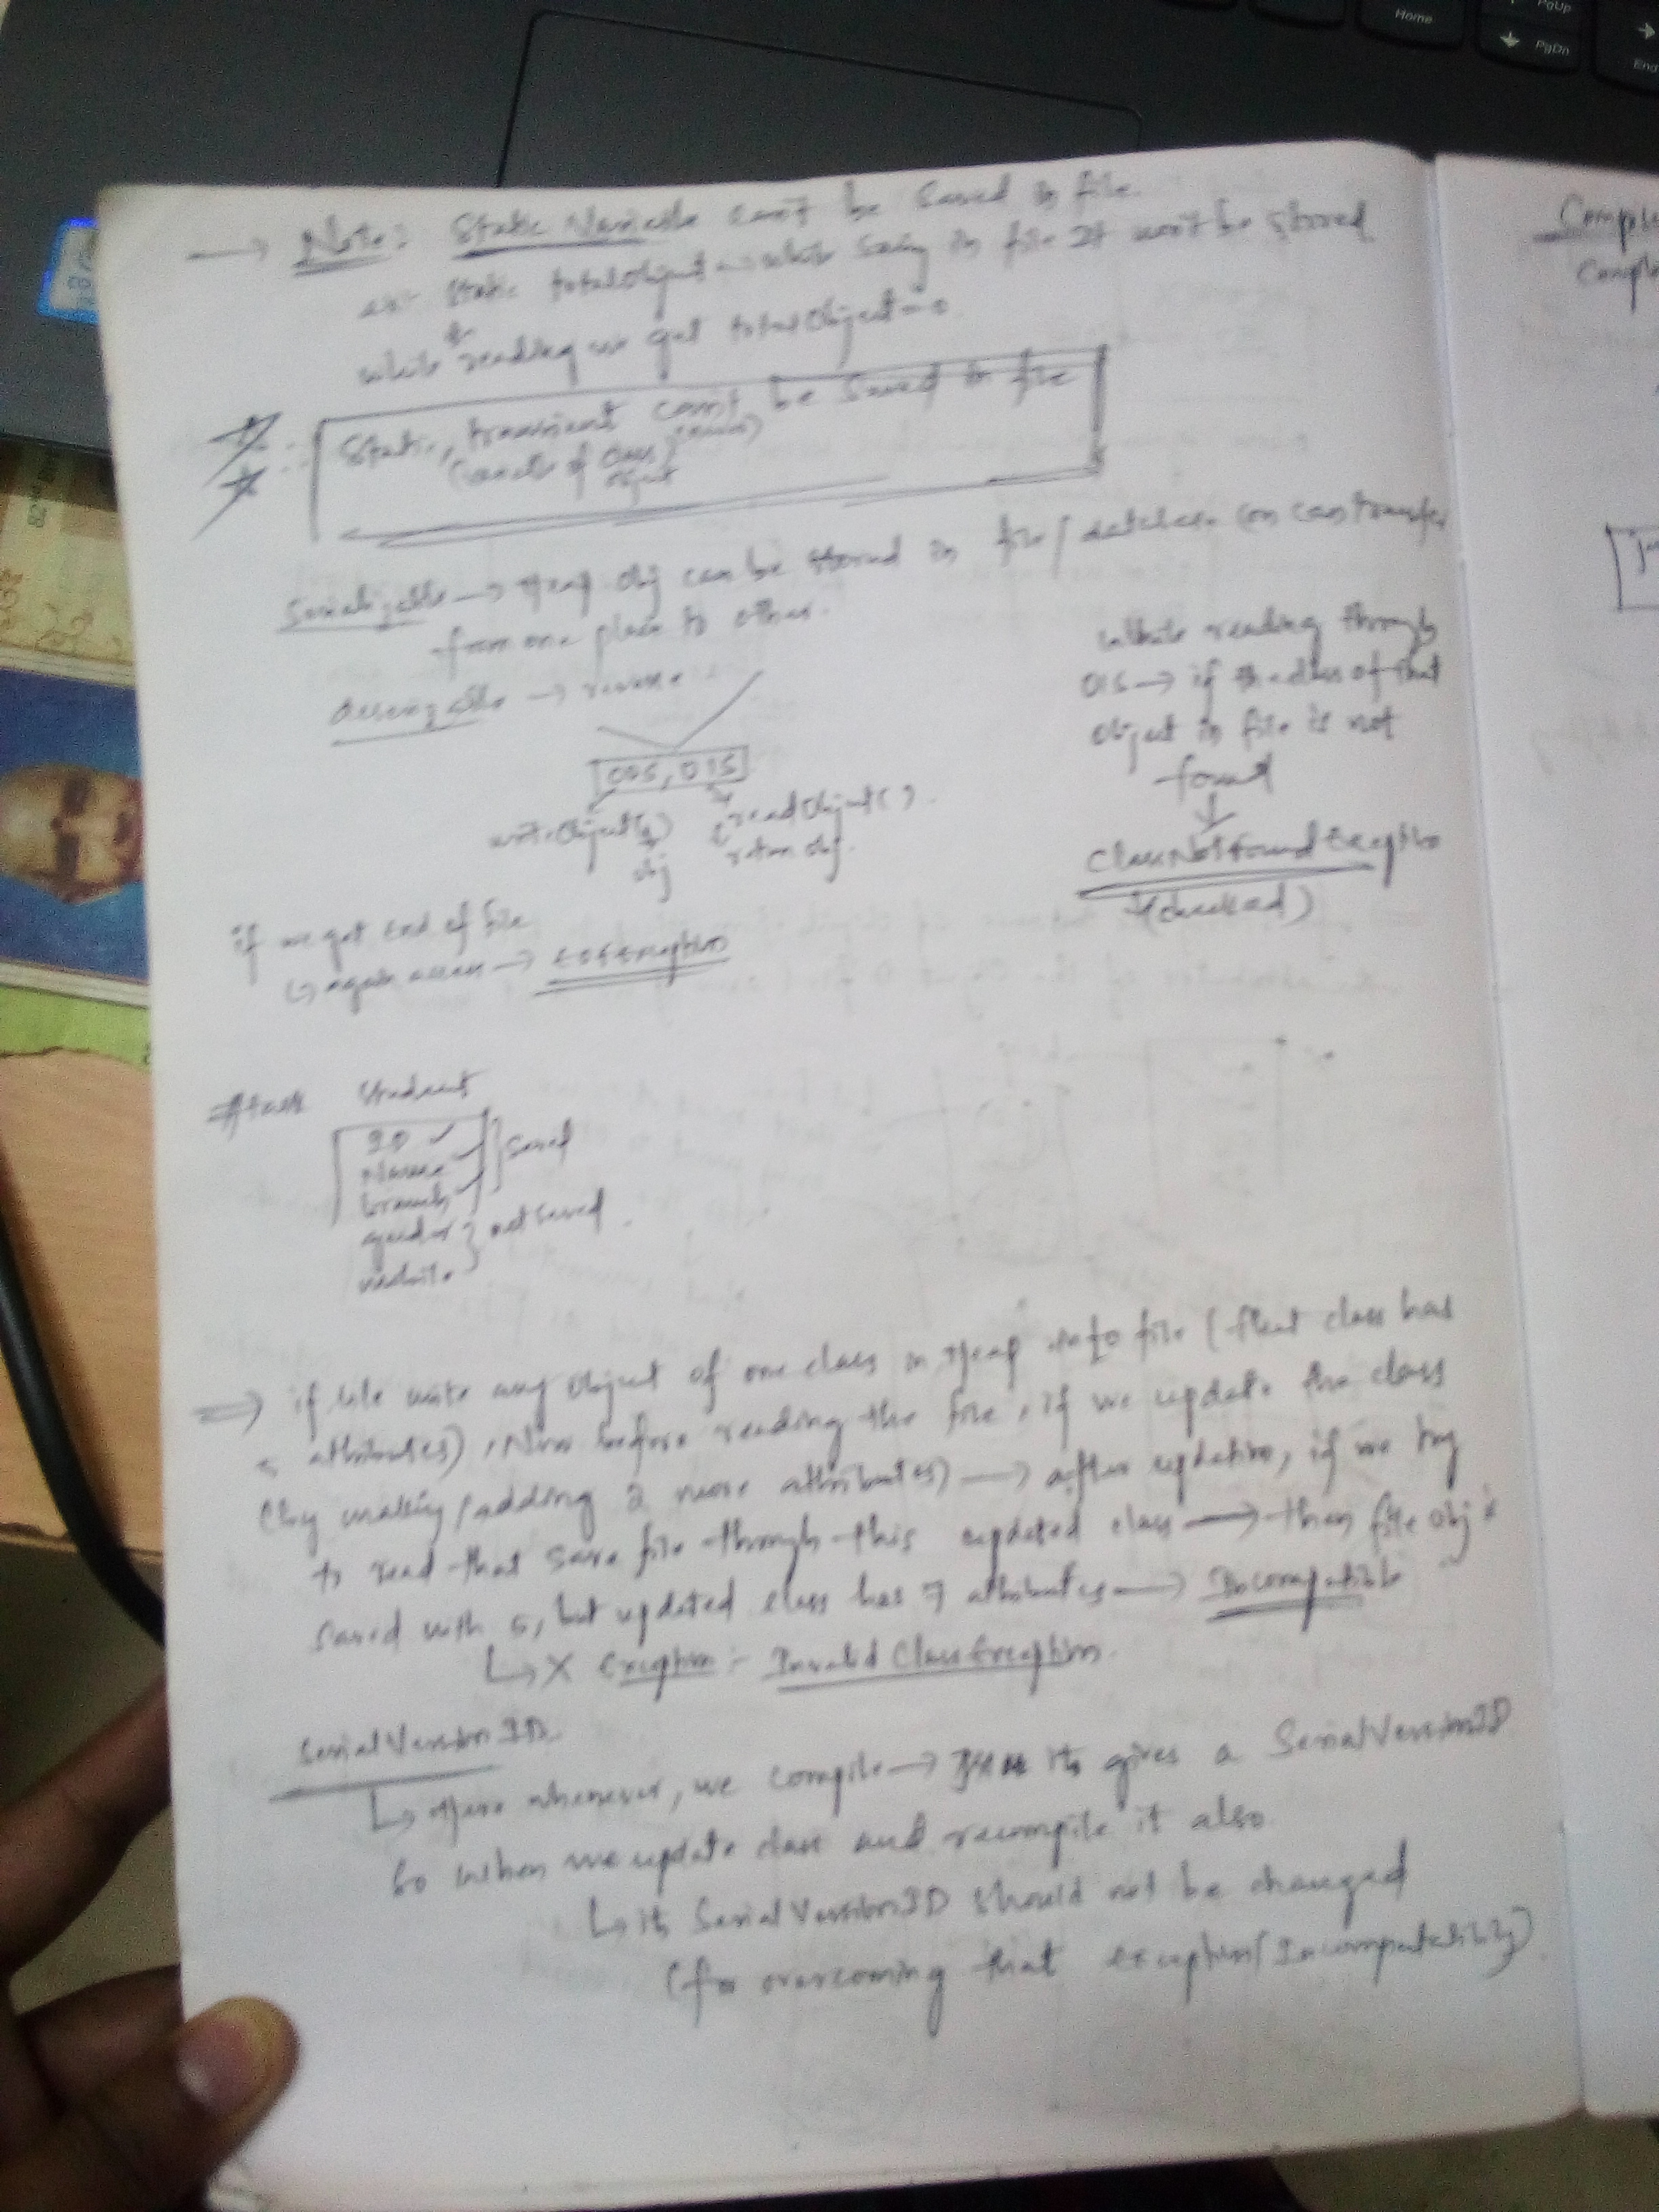 → Note: Static Variable can't be saved in file.
ex:- Static totalObject → while saving in file It won't be stored
while reading we get totalObject = 0
Static, transient can't be saved to file
object
Serializable → Heap Obj can be stored in file / database (on can transfer
from one place to other.
→ reverse
[OOS, OIS]
writeObject( ) readObject( ).
obj return obj.
while reading through
OIS → if the class of that
object in file is not
found
↓
ClassNotFoundException
(checked)
if we get end of file
↳ again access → EOFException
Student
ID ✓
Name ✓
branch ✓
} Saved
} not saved.
website
⇒ if We write any Object of one class in Heap into file (that class has
5 attributes), Now before reading the file, if we update the class
(by making/adding 2 more attributes) → after updation, if we try
to read that same file through this updated class → then file obj is
saved with 5, but updated class has 7 attributes → Incompatible
↳ X Exception :- InvalidClassException.
SerialVersionID
↳ Here whenever, we compile → its gives a SerialVersionID
So When we update class and recompile it also
↳ its SerialVersionID should not be changed
(for overcoming that exception (Incompatability)
Home
PgUp
PgDn
End